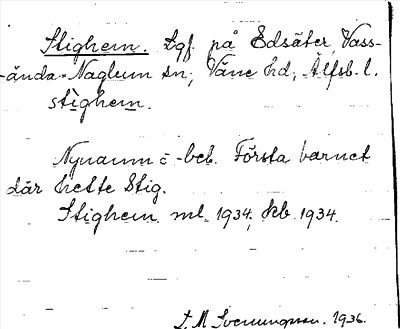 Stighem. Lgf. på Edsäter, Vass-
ända-Naglum sn; Väne hd, Älfsb. l.
stighem.
Nynamn o -beb. Första barnet
där hette Stig.
Stighem ml. 1934, kb. 1934.
S. M Svenungsson. 1936.